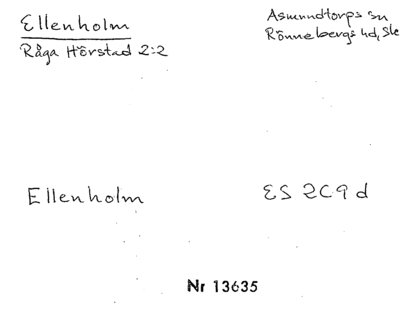 Ellenholm
Råga Hörstad 2:2
Asmundtorps sn
Rönnebergs hd, Sk
Ellenholm
ES 2C9 d
Nr 13635